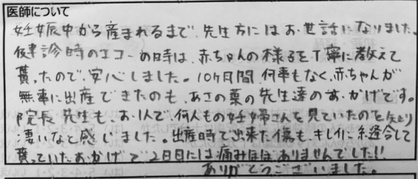 医師について
妊娠中から産まれるまで、先生方にはお世話になりました。
健診時のエコーの時は、赤ちゃんの様子を丁寧に教えて
貰ったので、安心しました。10ヶ月間何事もなく、赤ちゃんが
無事に出産できたのも、あさの葉の先生達のおかげです。
院長先生も、お1人で、何人もの妊婦さんを見ていたのを知り
凄いなと感じました。出産時で出来た傷も、キレイに縫合して
貰っていたおかげで2日目には痛みほぼありませんでした!!
ありがとうございました。